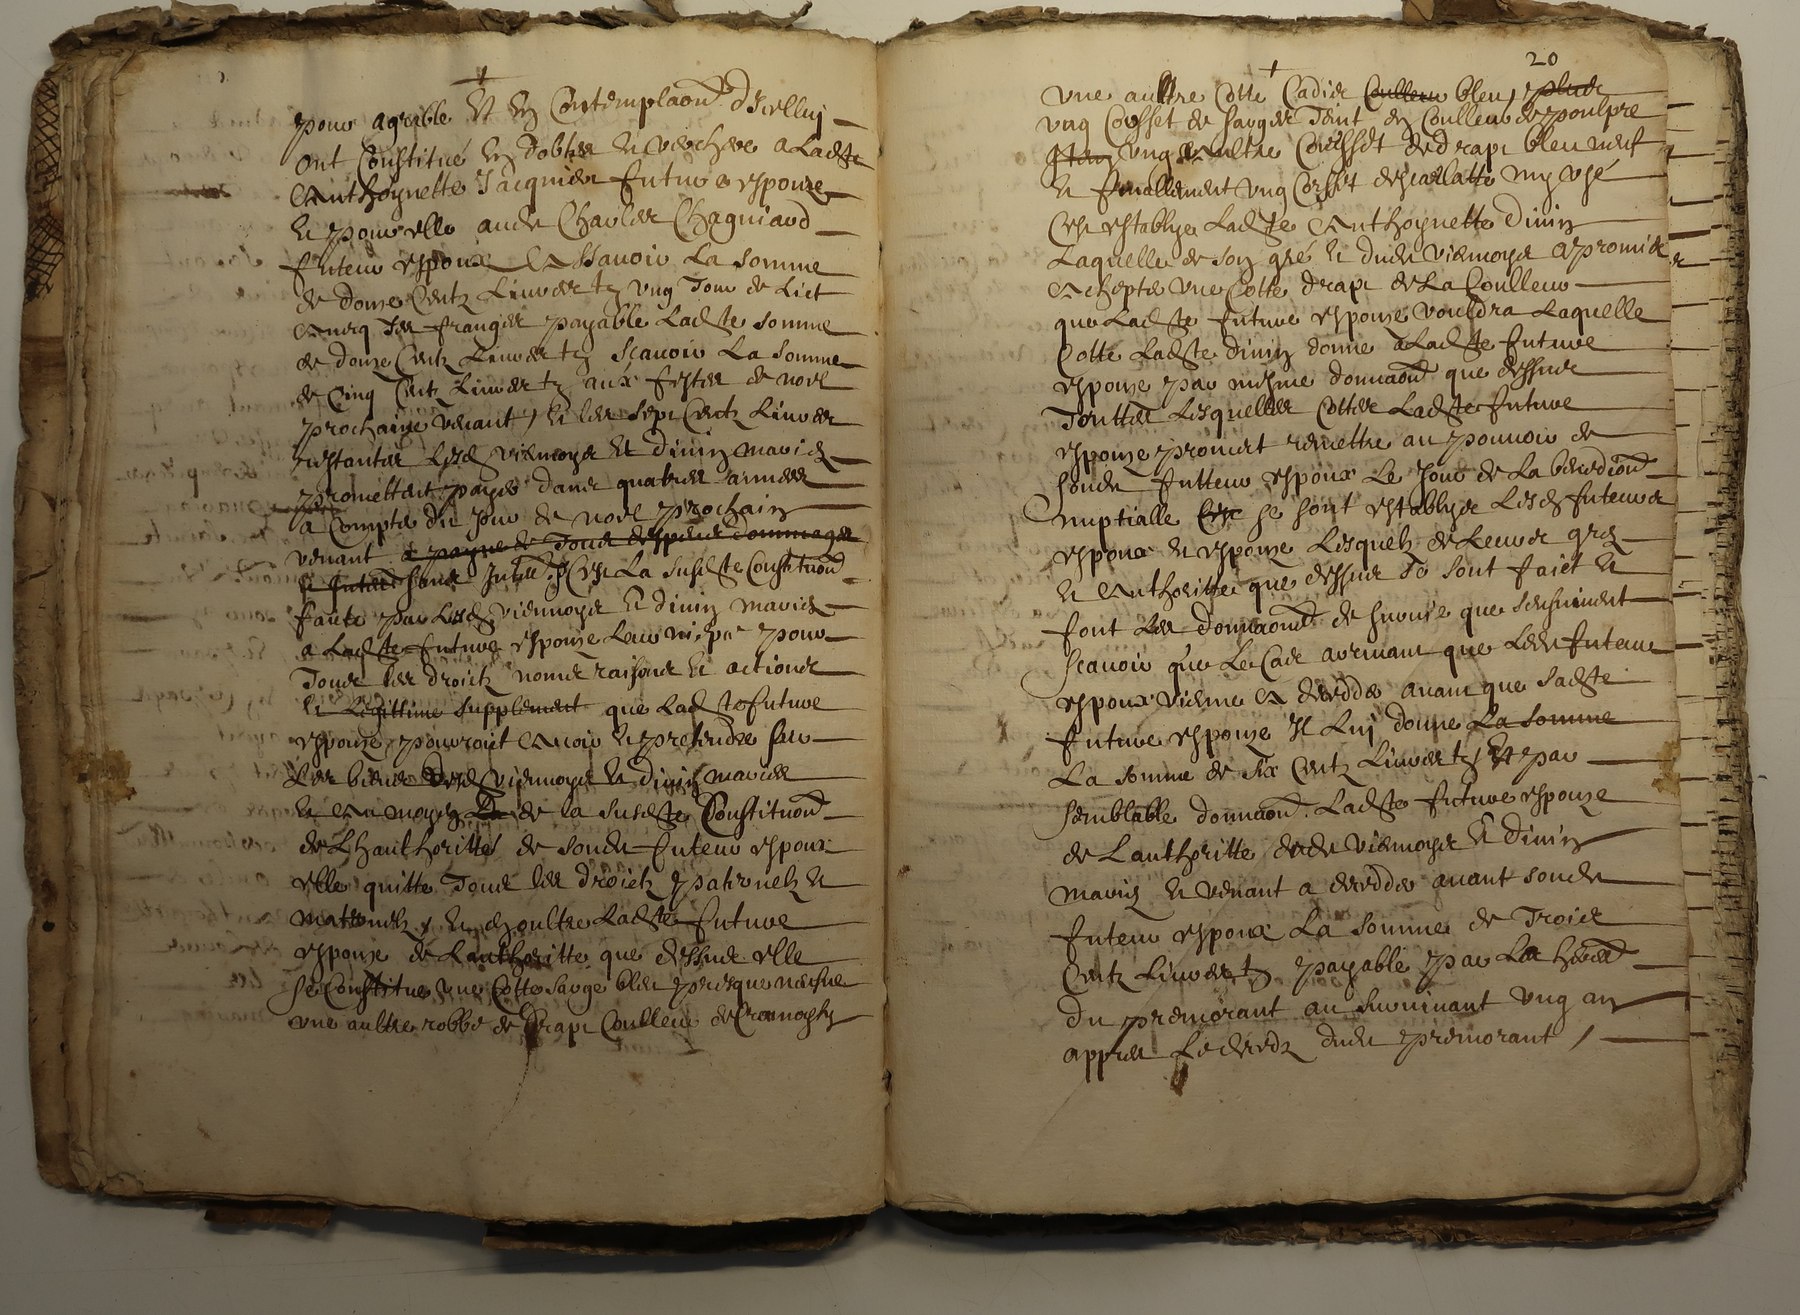 pour agreable Et En Contemplaon d'icelluy
ont Constitué En dobte Et verchere a Ladte
Anthoynette Jacquier future espouze
Et pour elle aude Charles Chagniard
futeur espoux Assavoir La somme
de douze Centz Livres tz ung Tour de Lict
Avecq ses franges payable Ladte somme
de douze Centz Livres tz sçavoir La somme
de Cinq Centz Livres tz aux festes de noel
prochaine venant, Et les sept Centz Livres
restantes Lesd Viennoys Et divin mariez
promettent payer dans quatres années
a Compter du Jour de noel prochain
venant a payne de Tous despens dommages
sans Intest Et La susdte Constituon
faicte par Lesd Viennoys Et divin mariez
a Ladte future espouze pour
Tous les droictz noms raisons Et actions
Et Legittime supplement que Ladte future
espouze pourroit Avoir Et pretendre sur
Les biens desd Viennoys Et divin mariez
Et Au moyen de la susdte Constituon
de L'hauthoritté de sonde futeur espoux
elle quitte Tous les droictz paternelz Et
maternelz, Et oultre Ladte future
espouze de L'authoritte que dessus elle
se Constitue une Cotte sarge bleu presque neufve
une aultre robbe de drapt Coulleur de Cramoysy
20
une aultre Cotte Cadis Coulleur bleu, plus
ung Corsset de sarges Teint En Coulleur de poulpre
Item ung aultre Corsset de drapt bleu neuf
Et finallement ung Corsset descarlatte my usé
C'est establye Ladte Anthoynette divin
Laquelle de son gré Et dude Viennoys a promis
Achepter une Cotte drapt de La Coulleur
que Ladte future espouze vouldra Laquelle
Cotte Ladte divin donne a Ladte future
espouze par mesme donnaon que dessus
Touttes Lesquelles Cottes Ladte future
espouze promect remettre au pouvoir de
sonde futteur espoux Le Jour de La benedion
nuptialle se sont establys Lesd futeurs
espoux Et espouze Lesquelz de Leurs grez
Et Authoritte que dessus se sont faict Et
font Les donnaons de survie que sensuivent
sçavoir que Le Cas arrivant que Lede futeur
espoux vienne A decedder avant que sadte
future espouze Il Luy donne La somme
La somme de six Centz Livres tz, Et par
semblable donnaon Ladte future espouze
de L'authoritte desde Viennoys Et divin
mariez Et venant a decedder avant sonde
futeur espoux La somme de Trois
Centz Livres tz payable par La hoird
du premorant au survivant ung an
appres Le decedz dude premorant /